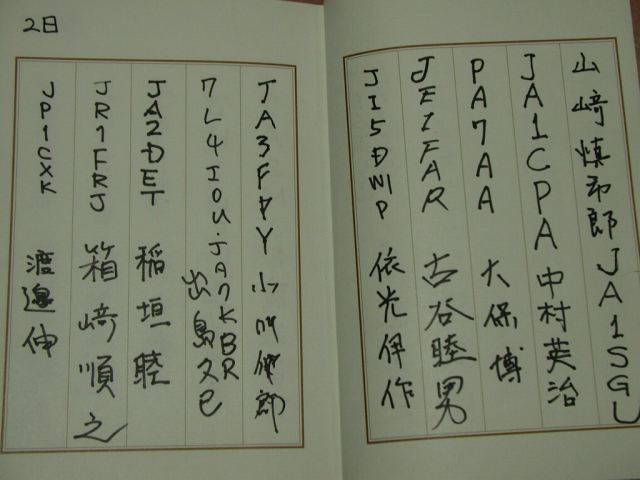 山﨑慎市郎 JA1SGU
JA1CPA 中村英治
PA7AA 大保博
JE1FAR 古谷睦男
JI5DWP 依光伊作
2日
JA3FAY 小川
7L4IOU・JA7KBR 出島久己
JA2DET 稲垣睦
JR1FRJ 箱﨑順之
JP1CXK 渡邉伸